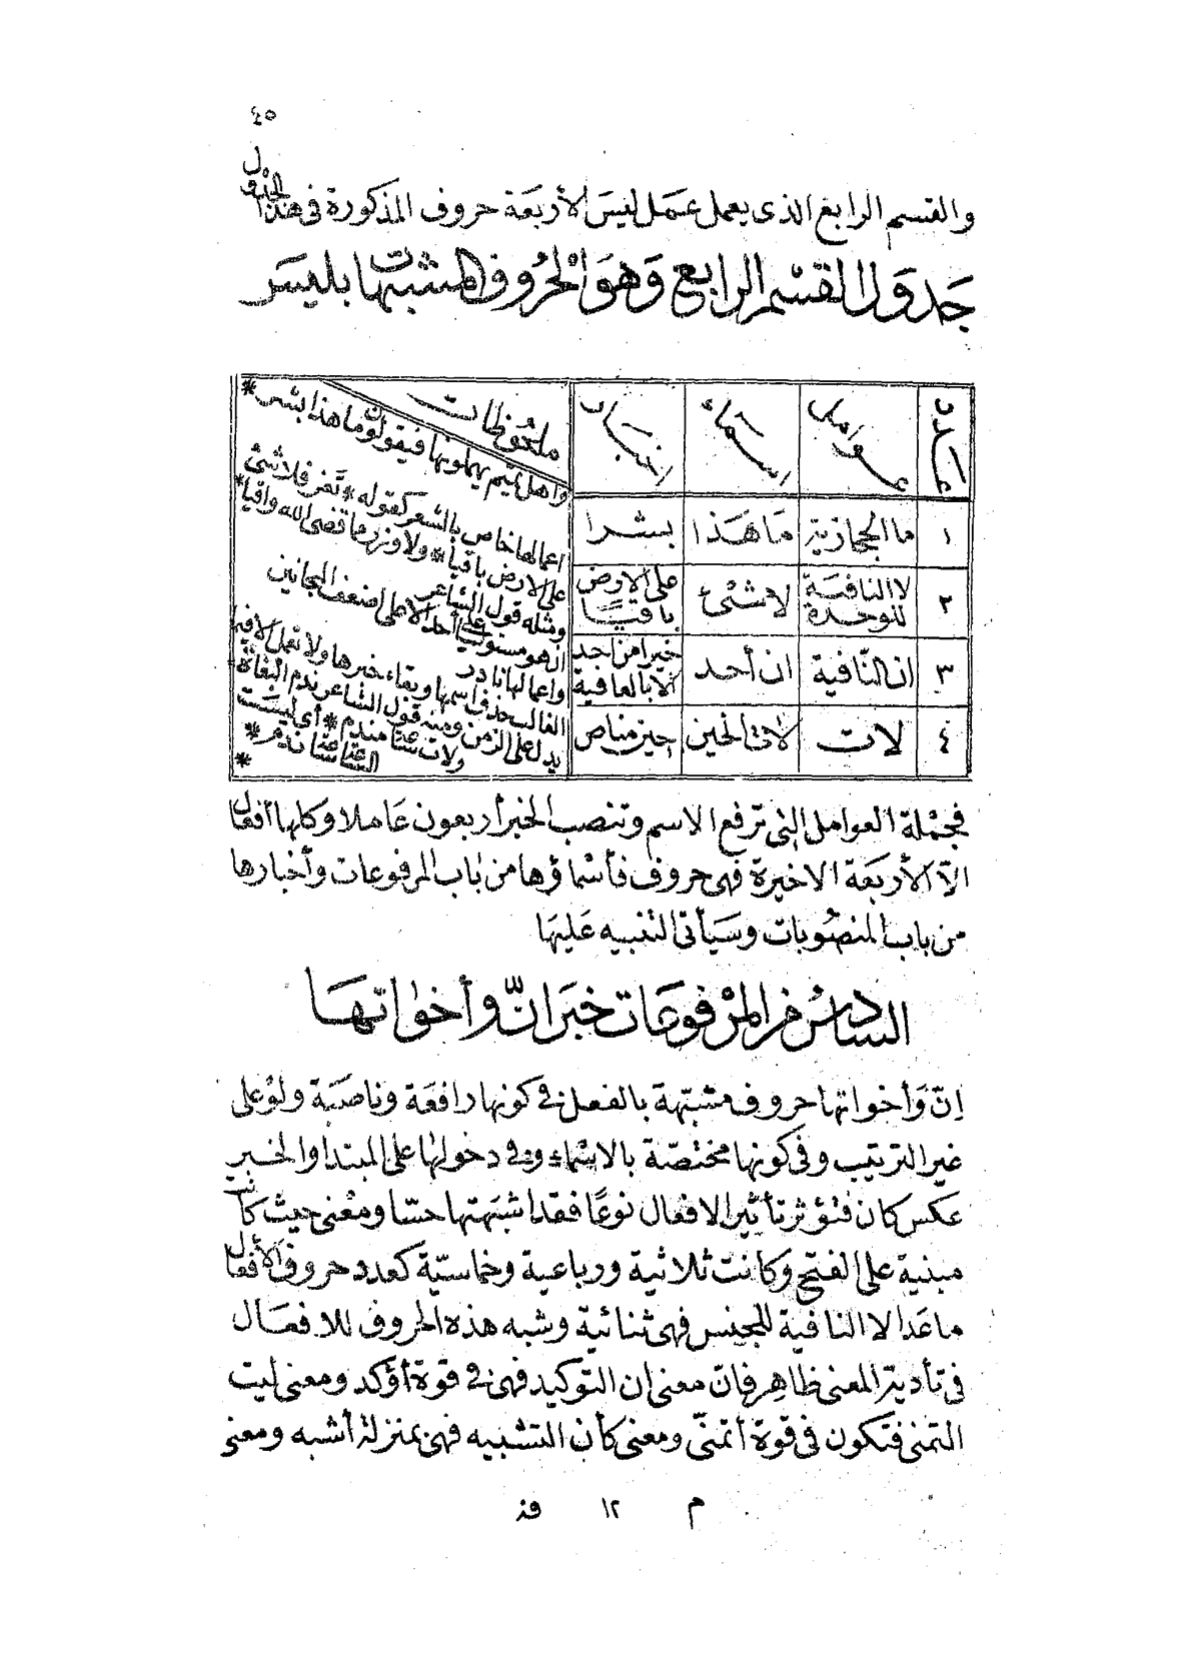 ٤٥
والقسم الرابع الذى يعمل عمل ليسَ لأربعَة حروف المذكورة فى هذا الجدول
جَدوَل القسْم الرابع وَهوَ الحُروف المشبهات بليسَ
عدد
عوامل
اسمآء
اخبار
ملحوظات
١
ما الحجازية
مَا هَذا
بشرا
وأهل تميم يهملونها فيقولون ما هذا بشر *
٢
لا النافيَة
للوحدة
لا شئ
على الارض
باقيًا
اعمالها خاص بالشعر كقوله * تعز فلا شئ
على الارض باقيا * ولا وزر مما قضى الله واقيا *
٣
ان النّافية
ان أحد
خيرا من احد
الا بالعافية
ومثله قول الشاعر
ان هو مستوليا على أحد * الا على اضعف المجانين
واعمالها نادر
٤
لات
لات الحين
حين مناص
الغالب حذف اسمها وبقاء خبرها ولا تعمل الا فيما
يدل على الزمن ومنه قول الشاعر ندم البغاة
ولات ساعة مندم * أى ليسَت
الساعة ساعة ندم *
فجمْلة العوامل التى ترفع الاسم وتنصب الخبر أربعون عَاملا وكلها أفعال
الاّ الأربَعَة الاخيرة فهى حروف فأسْماؤها من باب المرفوعات وأخبارها
من باب المنصُوبات وسَيأتى التنبيه عَليهَا
السادسْ من المرْفوعَات خبَر انّ وأخواتهَا
اِنّ وَأخواتها حروف مشبّهة بالفعل فى كونها رافعَة وناصَبَة ولوْ على
غير الترتيب وفى كونها مختصّة بالاسْماء وفى دخولها على المبتدا والخبر
عكس كان فتؤثر تأثير الافعال نوعًا فقد اشبَهتها حسّا ومعْنى حيث كانت
مبنية على الفتح وكانت ثلاثية ورباعية وخماسيّة كعدد حروف الأفعال
ما عَدا لا النافية للجنس فهى ثنائية وشبه هذه الحروف للافعَال
فى تأدية المعنى ظاهر فان معنى ان التوكيد فهى فى قوة أؤكد ومعنى ليت
التمنى فتكون فى قوة أتمنّى ومعنى كأن التشبيه فهى بمنزلة أشبه ومعنى
م ١٢ فذ